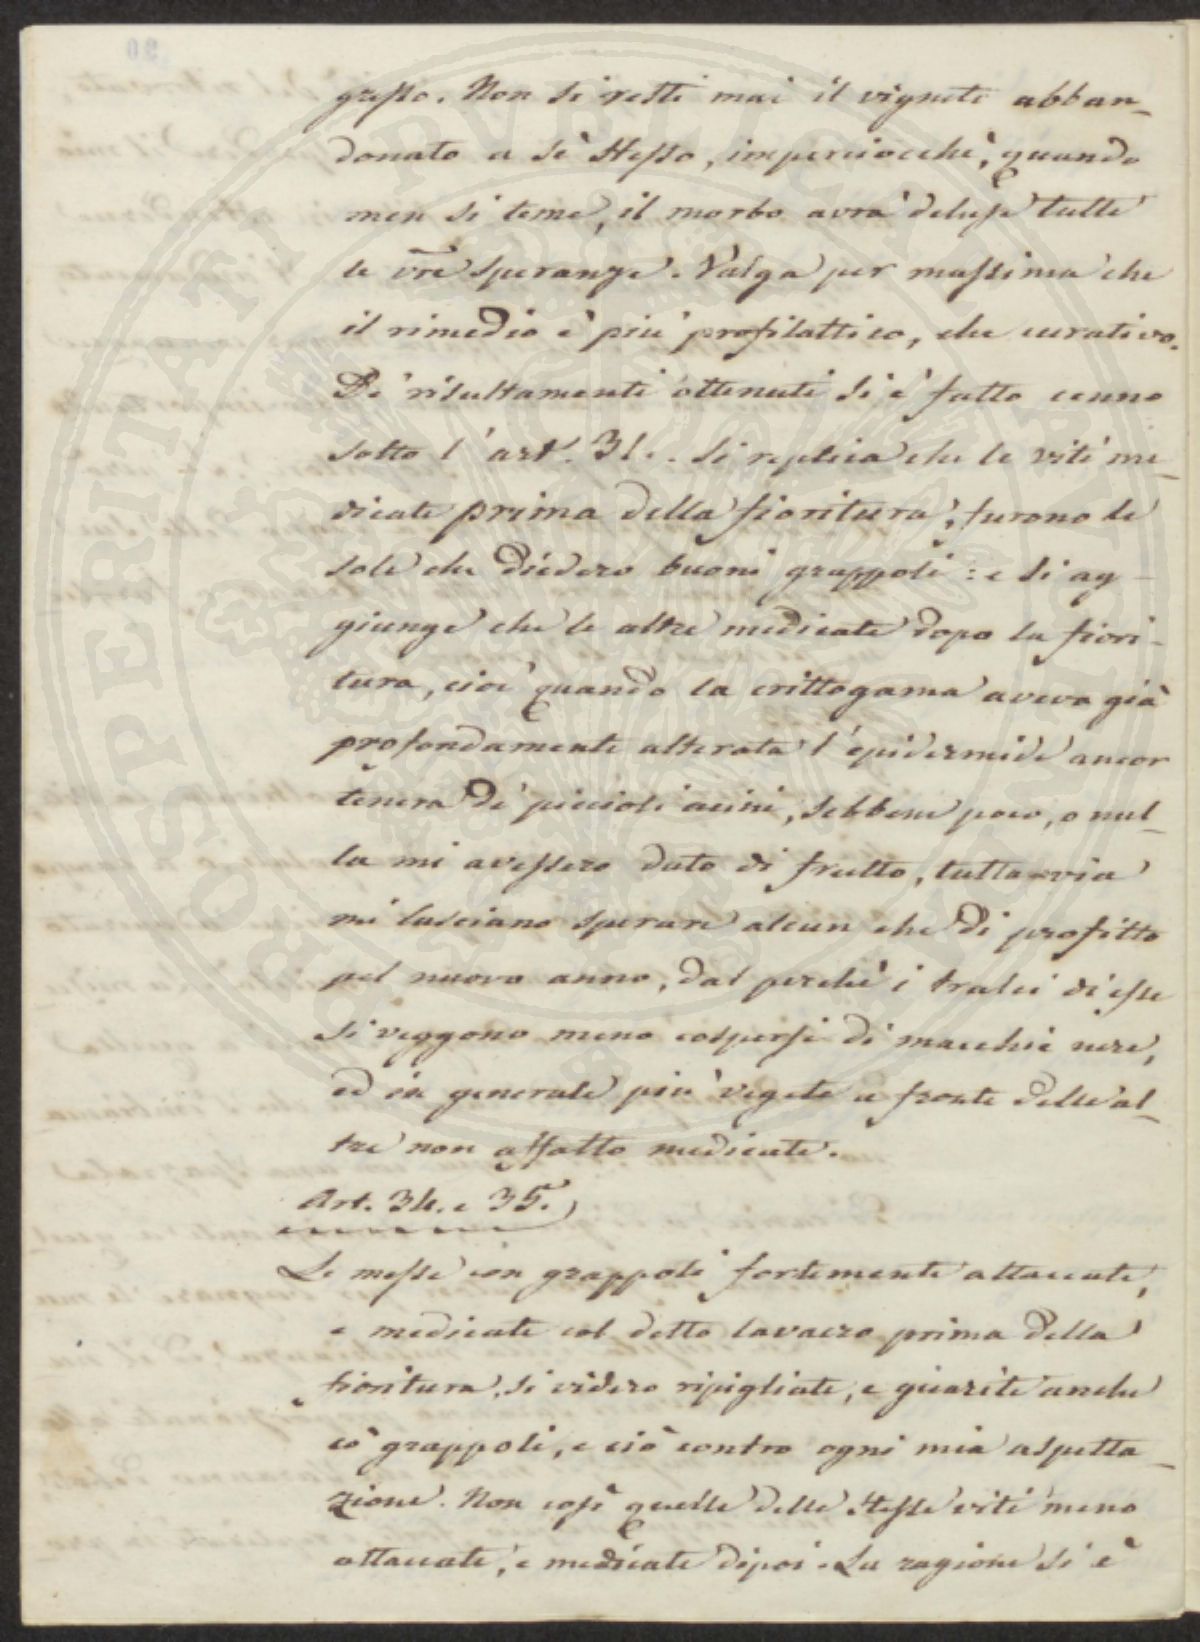 gresso. Non si resti mai il vigneto abban_
donato a sè stesso, imperciocchè, quando
men si teme, il morbo avrà deluse tutte
le v̅r̅e speranze. Valga per massima che
il rimedio è più profilattico, che curativo.
De' risultamenti ottenuti si è fatto cenno
sotto l'art. 31.. Si replica che le viti me_
dicate prima della fioritura, furono le
sole che diedero buoni grappoli: e si ag_
giunge che le altre medicate dopo la fiori_
tura, cioè quando la crittogama aveva già
profondamente alterata l'epidermide ancor
tenera de' piccioli acini, sebbene poco, o nul_
la mi avessero dato di frutto, tutta via
mi lasciano sperare alcun che di profitto
pel nuovo anno, dal perchè i tralci di esse
si veggono meno cospersi di macchie nere,
ed in generale più vegete a fronte delle al_
tre non affatto medicate.
Art. 34. e 35.
Le messe con grappoli fortemente attaccate,
e medicate col detto lavacro prima della
fioritura, si videro ripigliate, e guarite anche
co' grappoli, e ciò contro ogni mia aspetta_
zione. Non così quelle delle stesse viti meno
attaccate, e medicate dipoi. La ragione si è
PROSPERITATI PVBLICAE